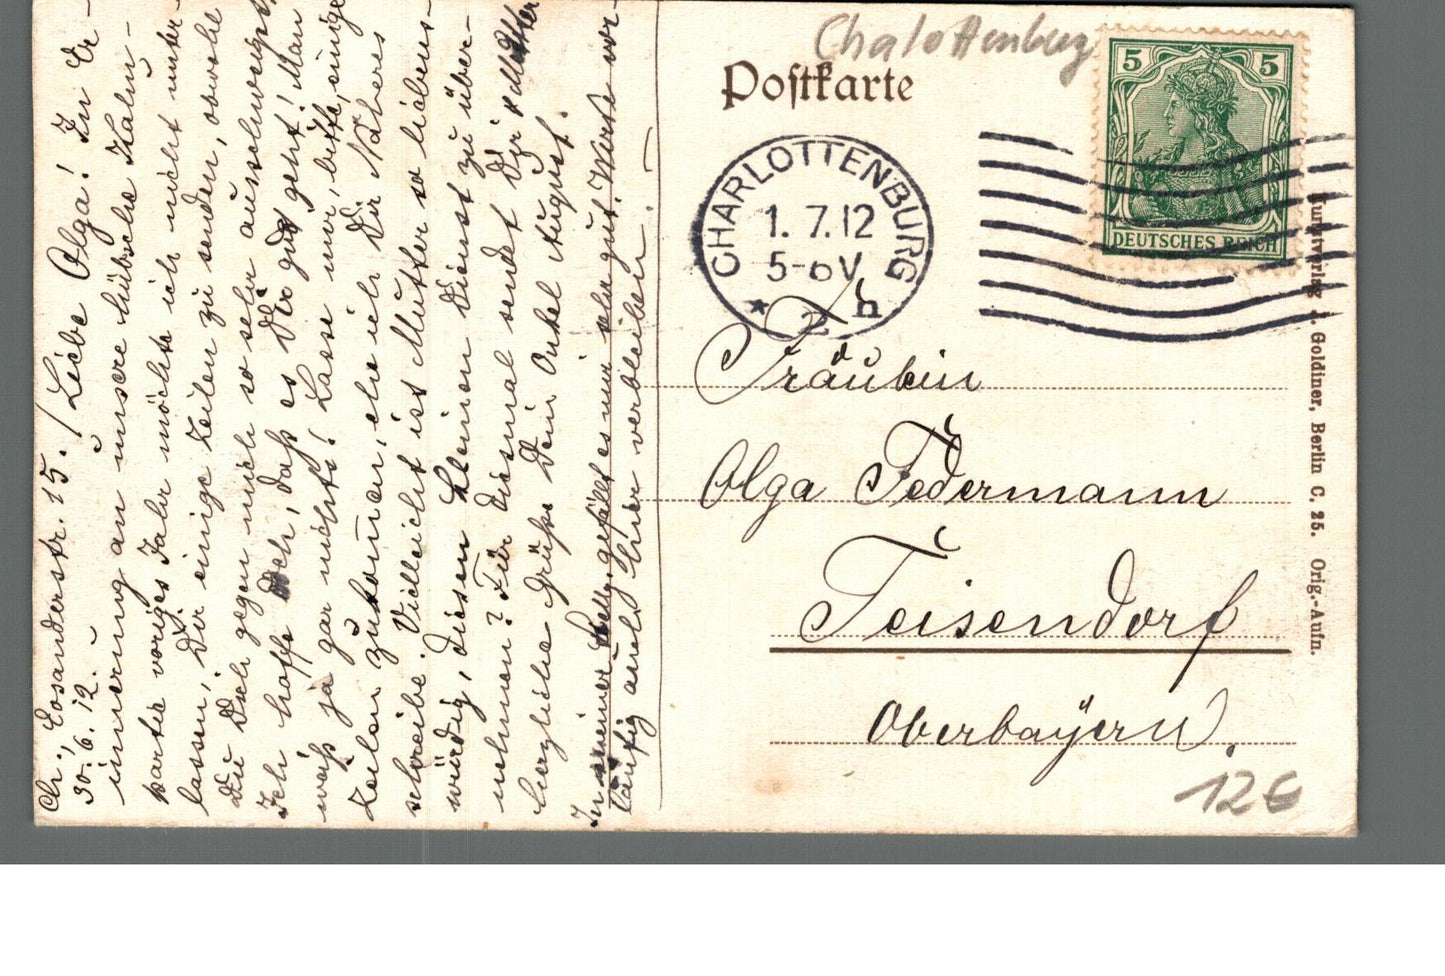 Chalottenburg
Postkarte
5 5
DEUTSCHES REICH
CHARLOTTENBURG
1. 7. 12
5-6V
* 2 h
Fräulein
Olga Federmann
Teisendorf
Oberbayern.
12€
Kunstverlag J. Goldiner, Berlin C, 25. Orig.-Aufn.
Ch., Eosanderstr. 15. / Liebe Olga! In Er-
30.6.12.
innerung an unsere hübsche Kahn-
partie voriges Jahr möchte ich nicht unter-
lassen, Dir einige Zeilen zu senden, obwohl
Du Dich gegen mich so sehr ausschweigst
Ich hoffe doch, daß es Dir gut geht! Man
weiß ja gar nichts! Lasse mir, bitte, einige
Zeilen zukommen, ehe ich Dir Näheres
schreibe. Vielleicht ist Mutter so liebens-
würdig, diesen kleinen Dienst zu über-
nehmen? Für diesmal sendet Dir
herzliche Grüße Dein Onkel August.
In meiner gefällt es mir sehr gut. Werde vor-
läufig auch hier verbleiben.